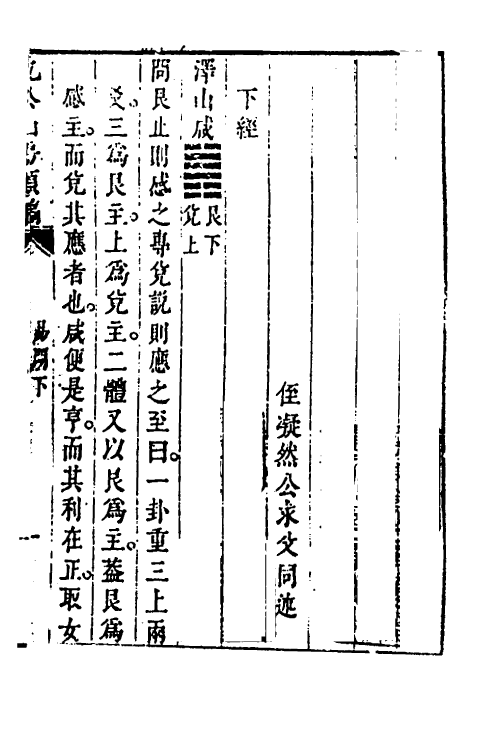 侄凝然公求父同遊
下經
澤山咸䷞艮下兌上
問艮止則感之專兌說則應之至曰。一卦重三上兩
爻。三爲艮主。上爲兌主。二體又以艮爲主。葢艮爲
感主。而兌其應者也。咸便是亨。而其利在正。取女
易
下